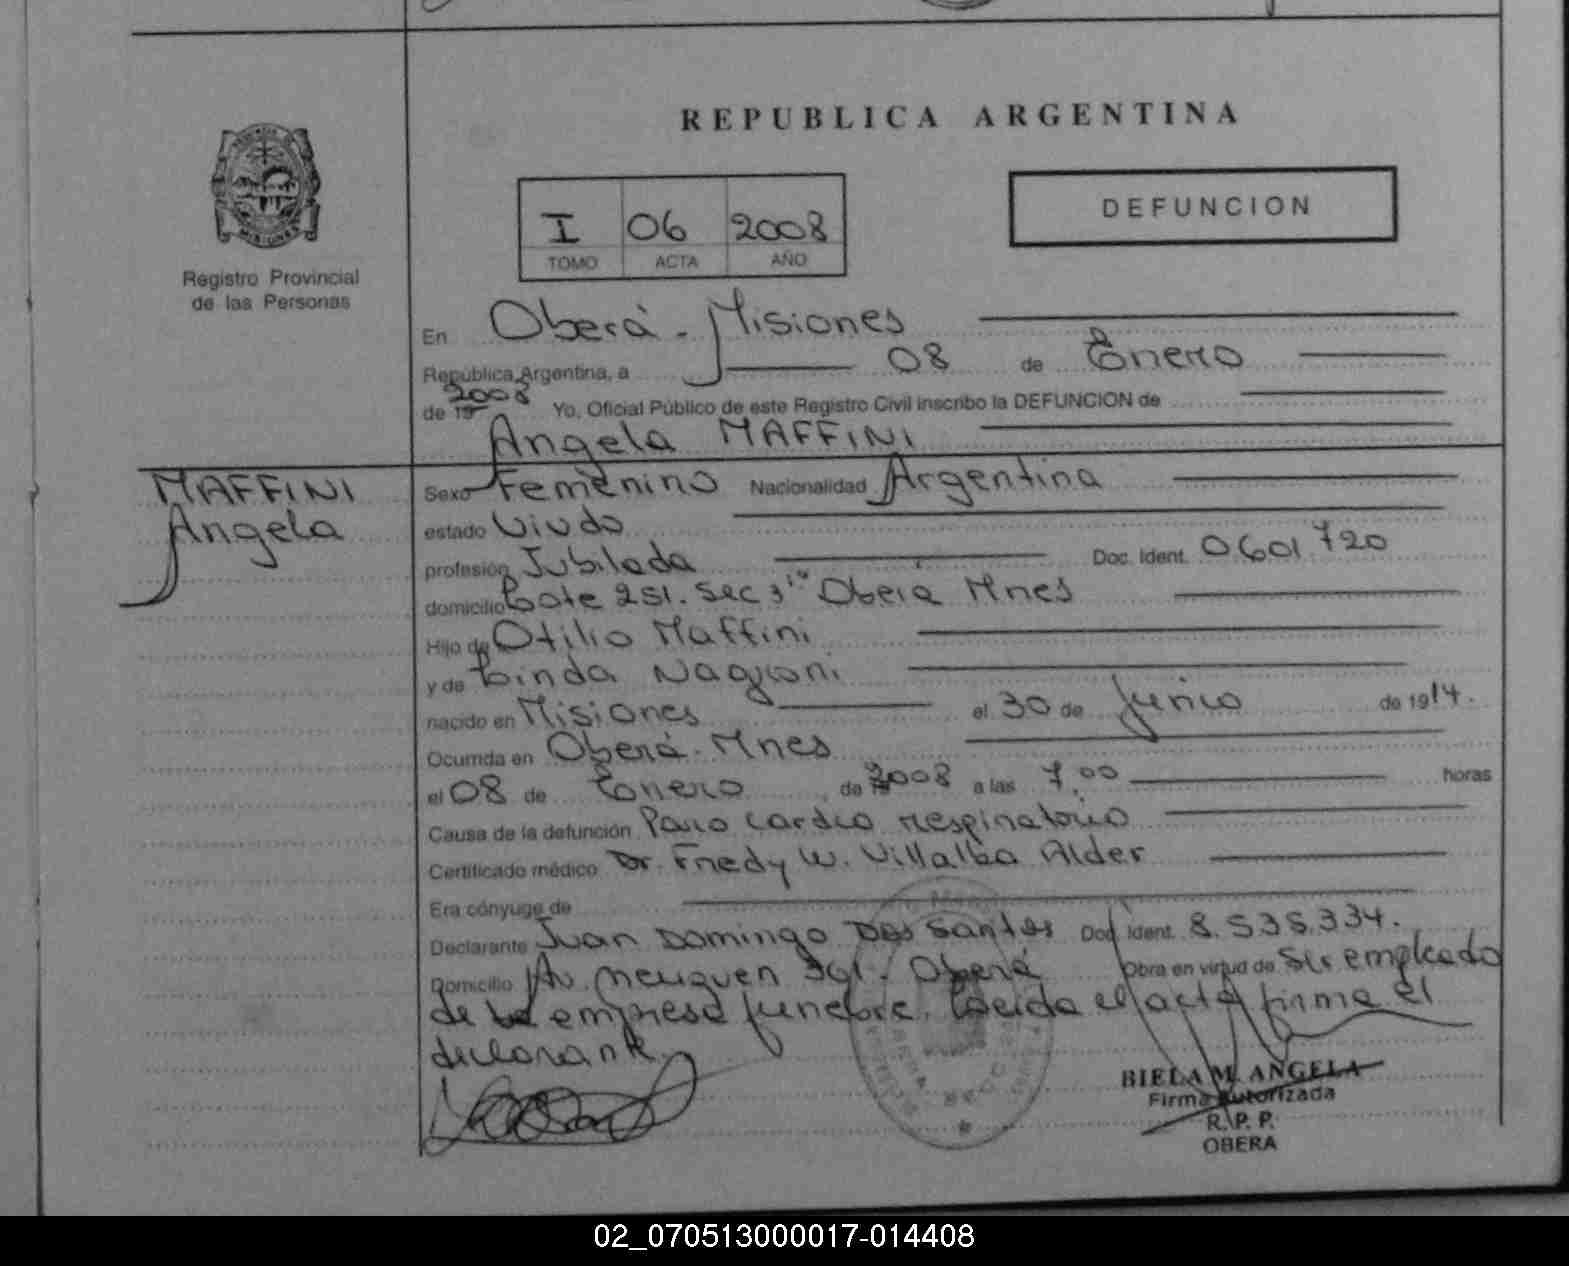 REPUBLICA ARGENTINA
I 06 2008
TOMO ACTA AÑO
DEFUNCION
Registro Provincial
de las Personas
En Oberá - Misiones
República Argentina, a 08 de Enero
de 19 2008 Yo, Oficial Público de este Registro Civil inscribo la DEFUNCION de
Angela MAFFINI
MAFFINI
Angela
Sexo Femenino Nacionalidad Argentina
estado Viudo
profesión Jubilada Doc. Ident. 0601720
domicilio Lote 251. Sec 3ra Oberá Mnes
Hijo de Otilio Maffini
y de Linda
nacido en Misiones el 30 de Junio de 1914.
Ocurrida en Oberá - Mnes
el 08 de Enero de 2008 a las 7,00 horas
Causa de la defunción Paro cardio respiratorio
Certificado médico Dr. Fredy W. Villalba Alder
Era cónyuge de
Declarante Juan Domingo Dos Santos Doc. Ident. 8.535.334.
Domicilio Av. Neuquen 391. Oberá Obra en virtud de Ser empleado
de la empresa funebre. Leida el acta firma el
declarante.
BIELA M. ANGELA
Firma Autorizada
R. P. P.
OBERA
02_070513000017-014408